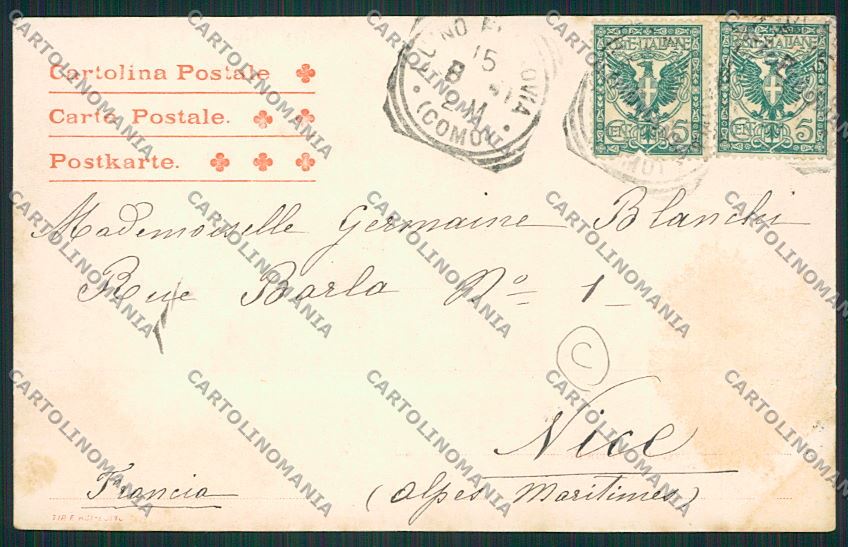 Cartolina Postale
Carte Postale.
Postkarte.
(COMO)
15
POSTE·ITALIANE
CENT. 5
POSTE·ITALIANE
CENT. 5
Mademoiselle Germaine Blanchi
Rue Barla Nº 1
C
Nice
Francia (Alpes Maritimes)
CARTOLINOMANIA